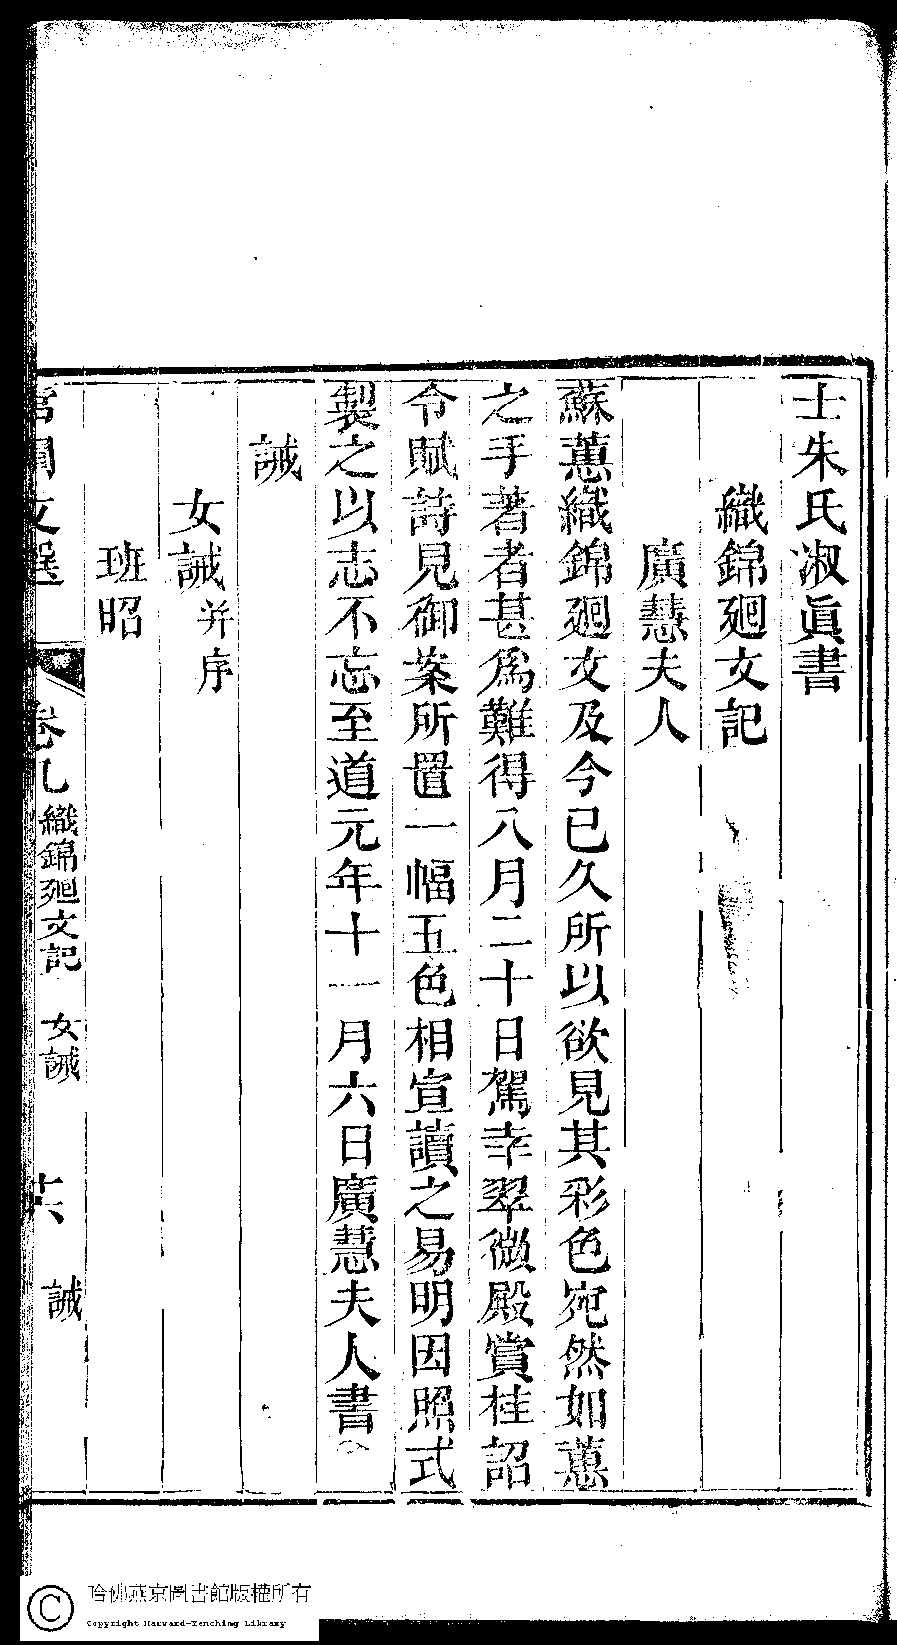 士朱氏淑眞書
織錦廻文記
廣慧夫人
蘇蕙織錦廻文及今已久所以欲見其彩色宛然如蕙
之手著者甚爲難得八月二十日駕幸翠微殿賞桂詔
令賦詩見御案所置一幅五色相宣讀之易明因照式
製之以志不忘至道元年十一月六日廣慧夫人書
誡
女誡并序
班昭
宮閨文選 卷九 織錦廻文記 女誡 十六 誡
哈佛燕京圖書館版權所有
Copyright Harvard-Yenching Library